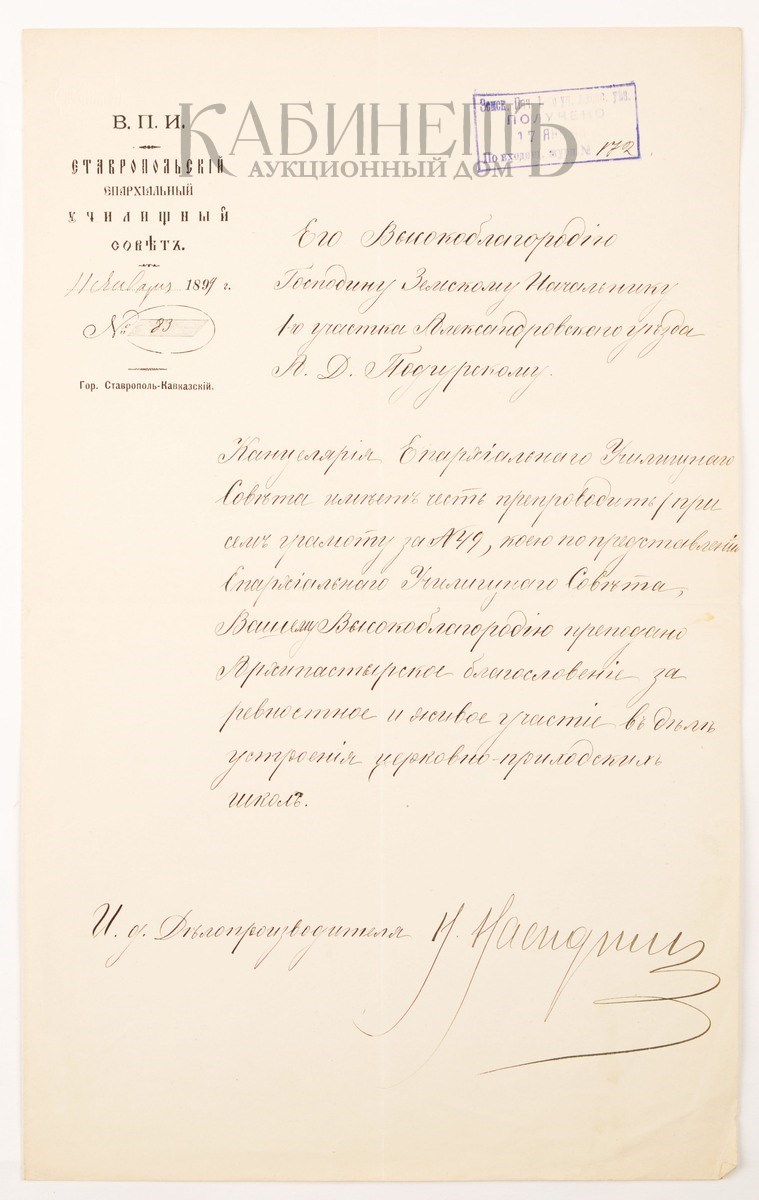 КАБИНЕТЪ
АУКЦИОННЫЙ ДОМ
В. П. И.
СТАВРОПОЛЬСКІЙ
ЕПАРХІАЛЬНЫЙ
УЧИЛИЩНЫЙ
СОВѢТЪ.
Января 1899 г.
№ 83
Гор. Ставрополь-Кавказскій.
ПОЛУЧЕНО
17
По входящ. №
172
Его Высокоблагородію
Господину Земскому Начальнику
1-го участка Александровскаго уѣзда
А. Д. Подгурскому.
Канцелярія Епархіальнаго Училищнаго
Совѣта имѣетъ честь препроводить при
семъ грамоту за №49, коею по представленію
Епархіальнаго Училищнаго Совѣта,
Вашему Высокоблагородію преподано
Архипастырское благословеніе за
ревностное и живое участіе въ дѣлѣ
устроенія церковно-приходскихъ
школъ.
И. д. Дѣлопроизводителя